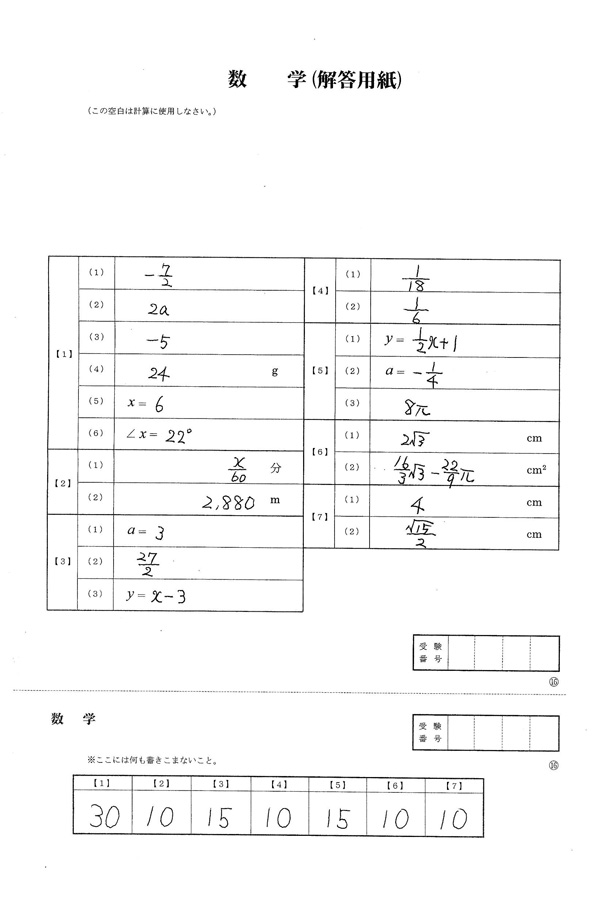 数　　学(解答用紙)
(この空白は計算に使用しなさい。)
【1】
(1) -7/2
(2) 2a
(3) -5
(4) 24 g
(5) x = 6
(6) ∠x = 22°
【2】
(1) x/60 分
(2) 2,880 m
【3】
(1) a = 3
(2) 27/2
(3) y = x-3
【4】
(1) 1/18
(2) 1/6
【5】
(1) y = 1/2x+1
(2) a = -1/4
(3) 8π
【6】
(1) 2√3 cm
(2) 16/3√3-22/9π cm²
【7】
(1) 4 cm
(2) √15/2 cm
受験番号
⑯
数　学
受験番号
⑯
※ここには何も書きこまないこと。
【1】 【2】 【3】 【4】 【5】 【6】 【7】
30 10 15 10 15 10 10